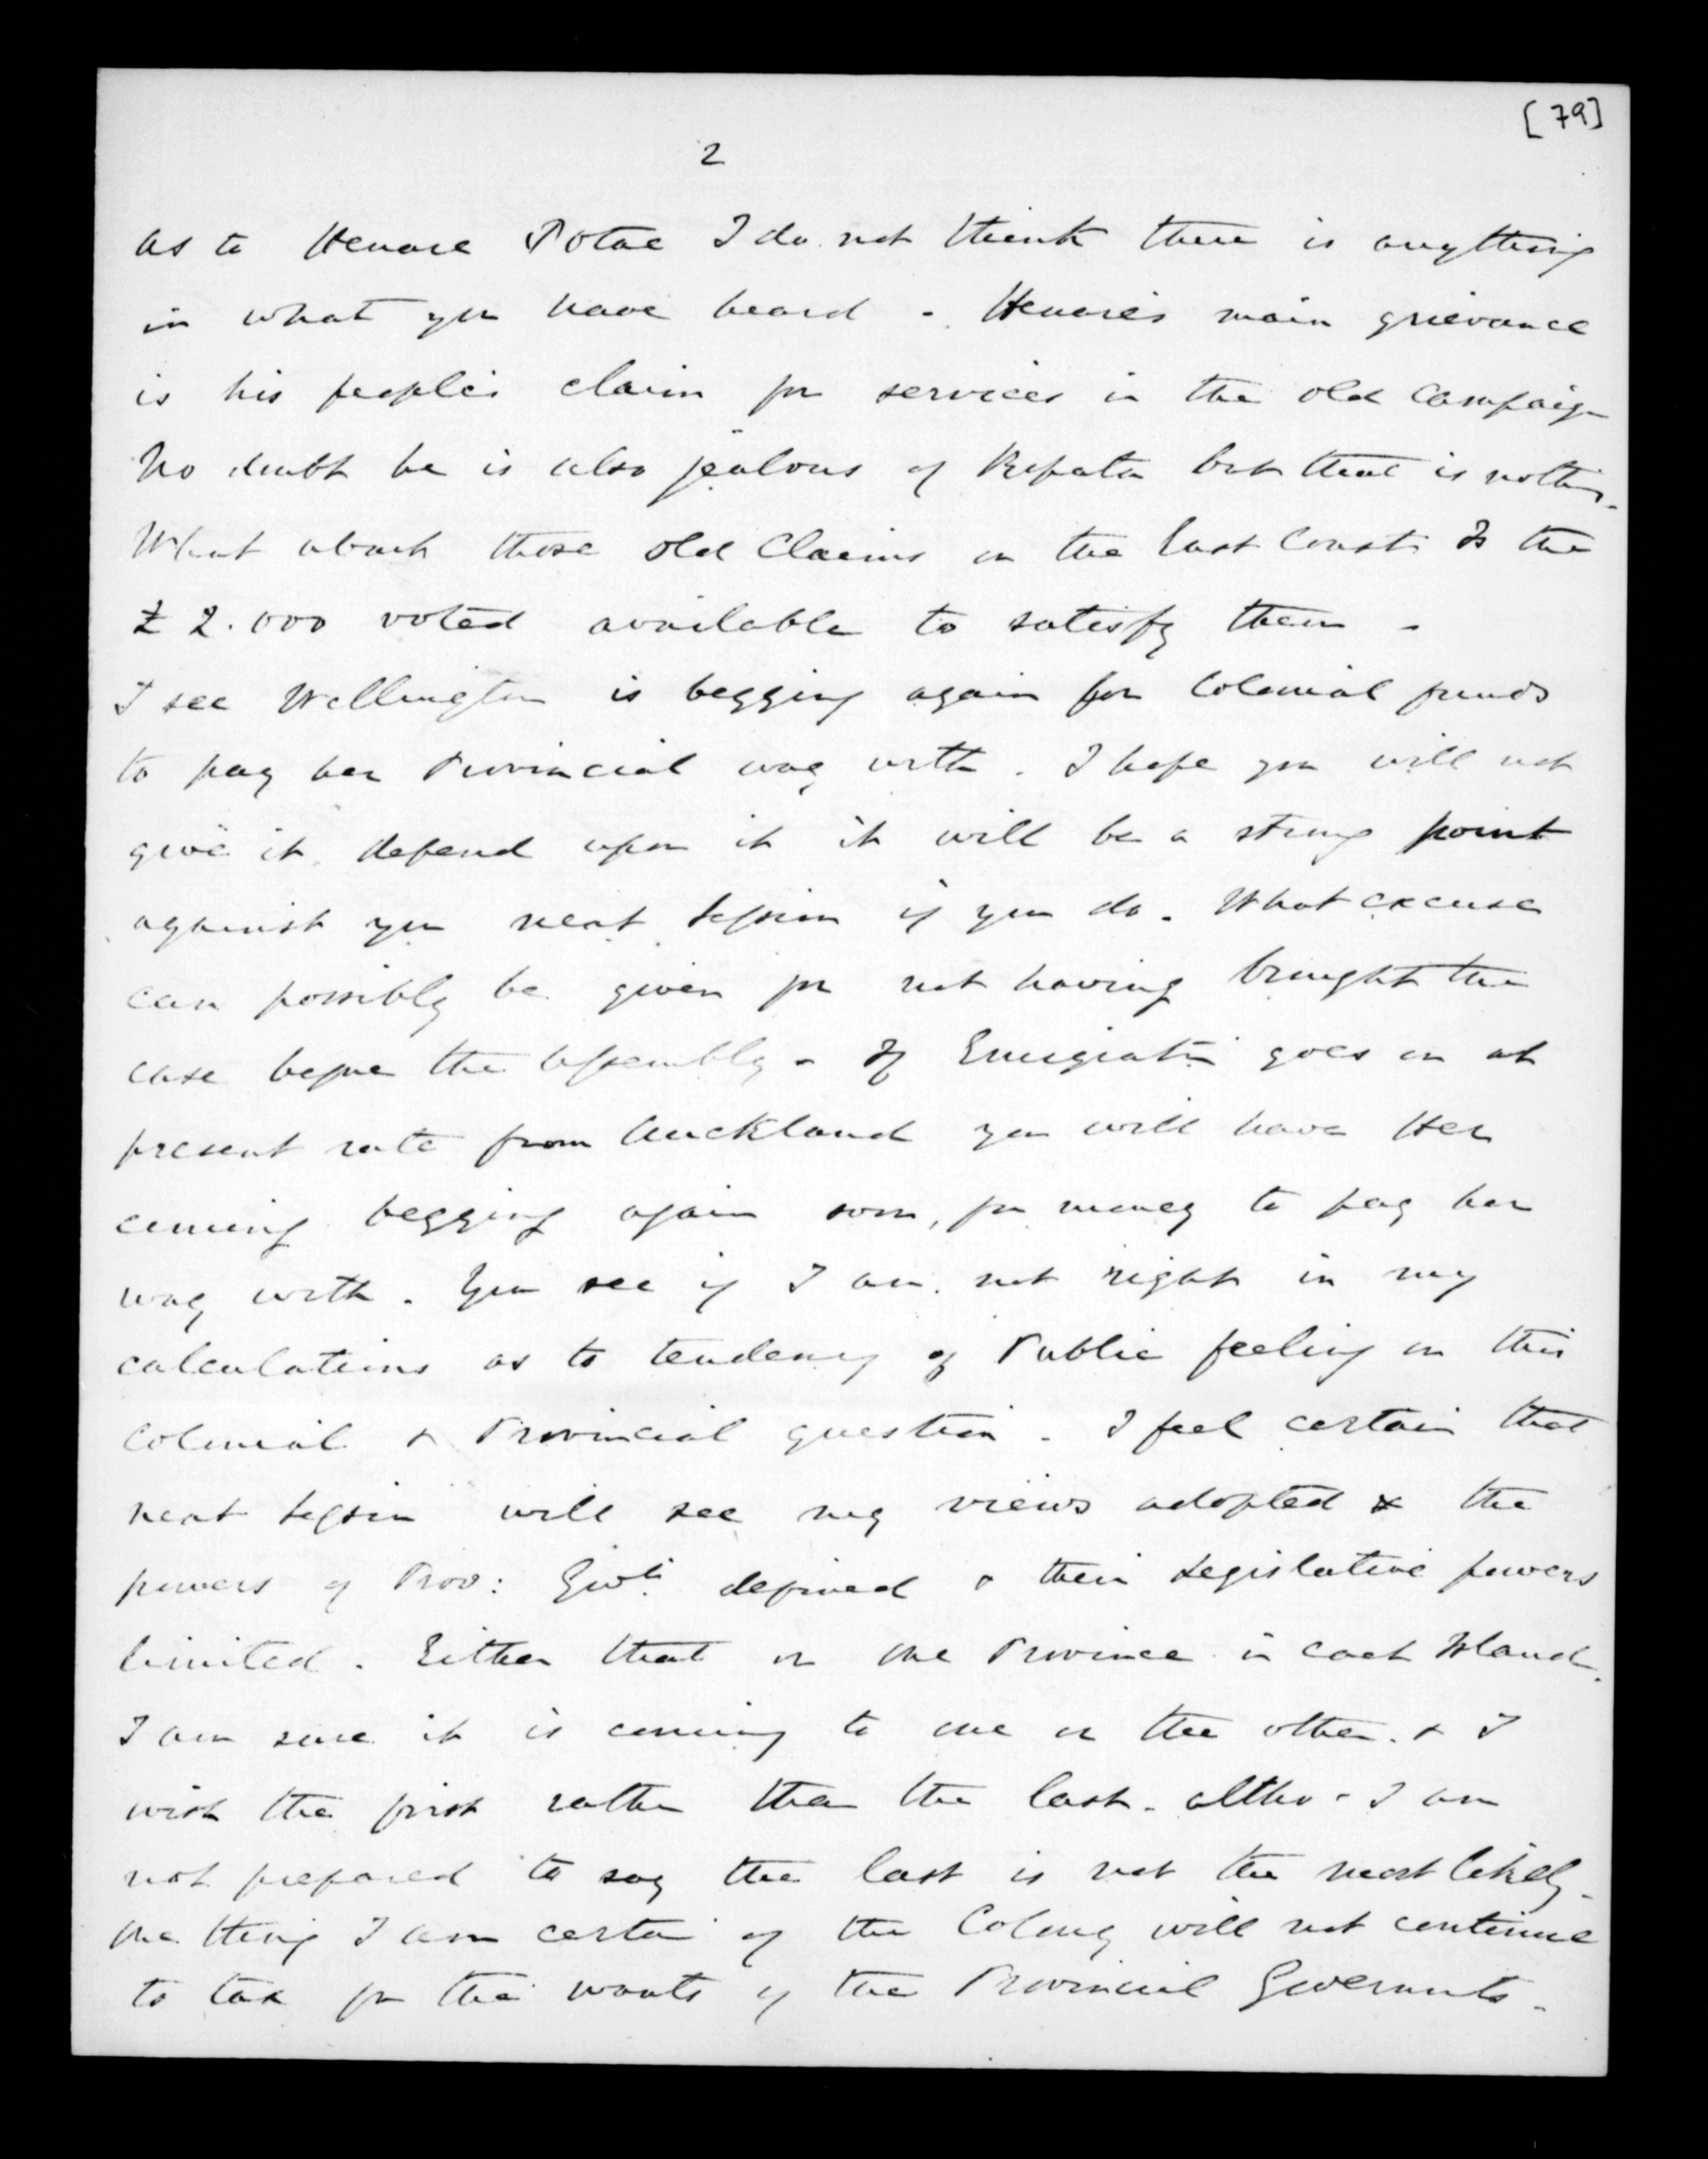 [79]
2
As to Henare Potae I do not think there is anything
in what you have heard - Henare's main grievance
is his people's claim for services in the old Campaign
No doubt he is also jealous of Ropata but that is nothing.
What about those old Claims on the East Coast Is the
£2.000 voted available to satisfy them -
I see Wellington is begging again for Colonial funds
to pay her Provincial way with. I hope you will not
give it depend upon it it will be a strong point
against you next Session if you do. What excuse
can possibly be given for not having brought the
case before the Assembly - If Emigratn goes on at
present rate from Auckland you will have Her
coming begging again soon, for money to pay her
way with. You see if I am not right in my
calculations as to tendency of Public feeling on this
Colonial & Provincial question. I feel certain that
next Session will see my views adopted & the
powers of Prov: Govts. defined & their Legislative powers
limited. Either that or one Province in each Island.
I am sure it is coming to one or the other. & I
wish the first rather than the last. altho' I am
not prepared to say the last is not the most likely.
One thing I am certain of the Colony will not continue
to tax for the wants of the Provincial Governmts.